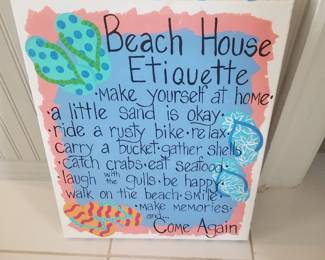 Beach House
Etiquette
·make yourself at home·
a little sand is okay·
·ride a rusty bike·relax·
carry a bucket·gather shells
·catch crabs·eat seafood·
·laugh with the gulls·be happy·
walk on the beach·smile·
·make memories·
and
Come Again